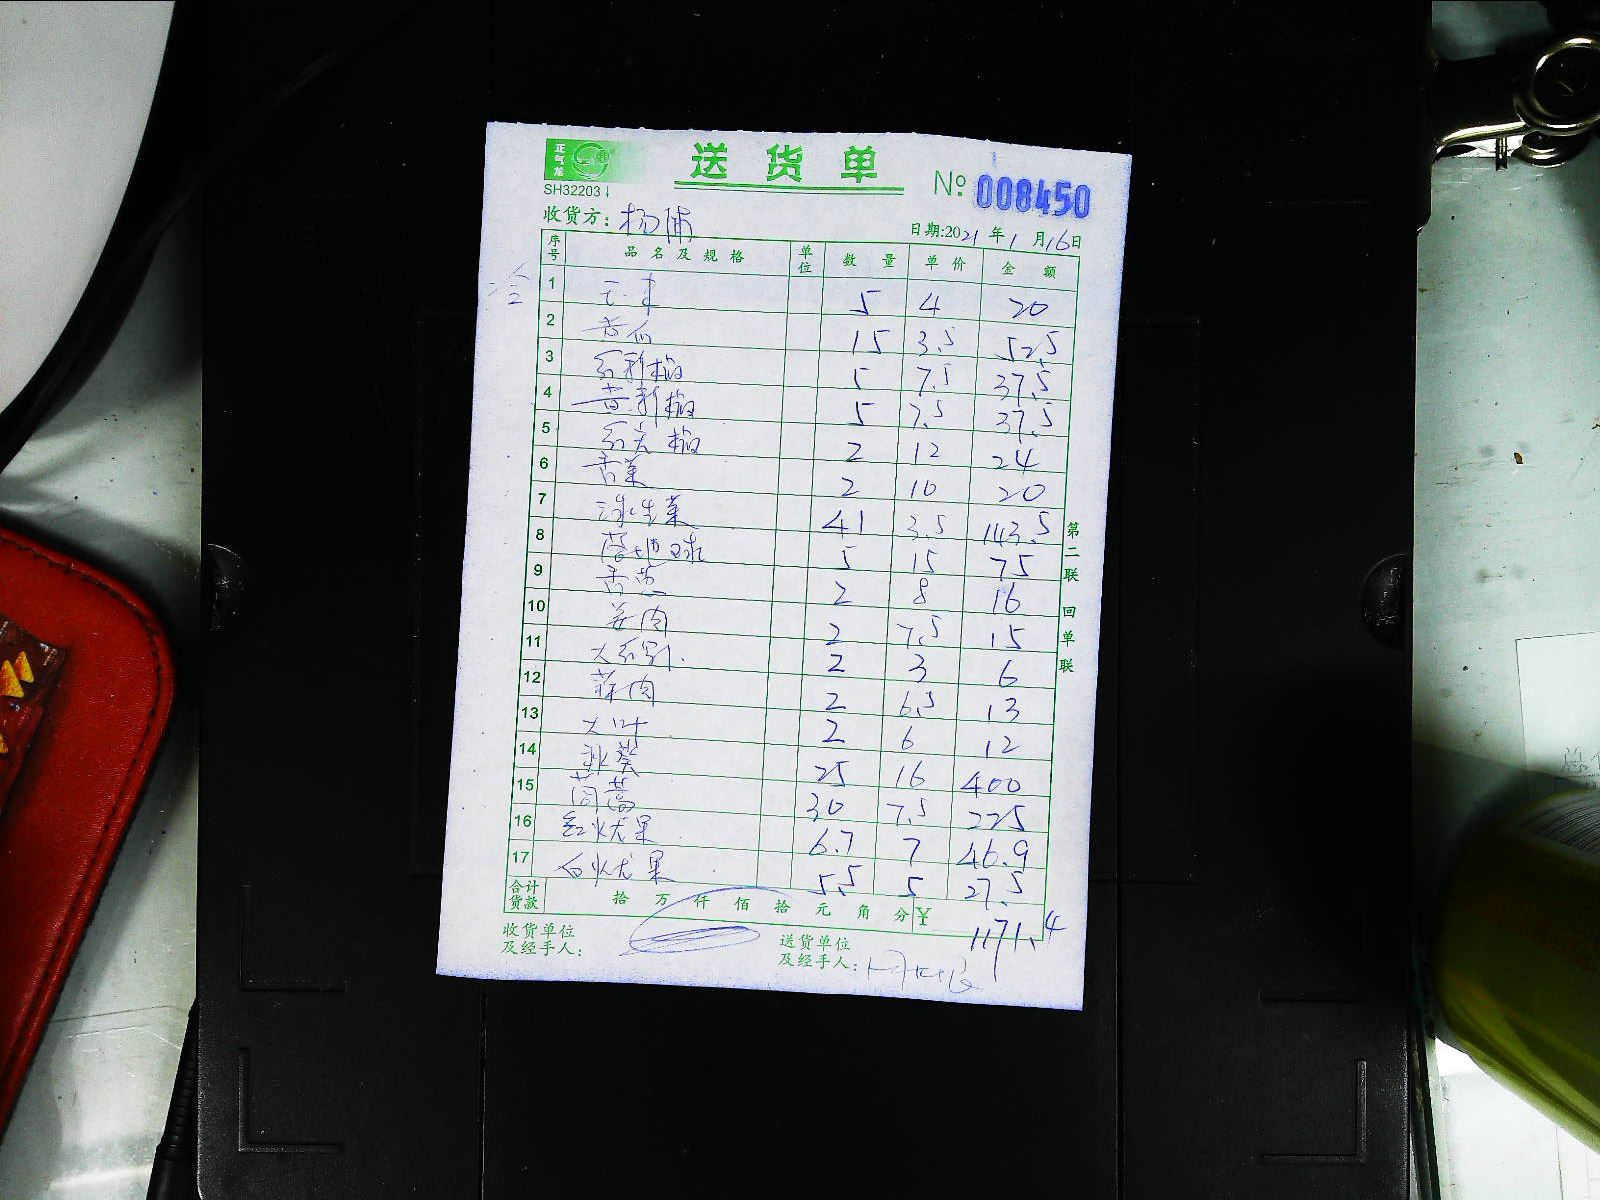 正气龙
送货单
SH32203
No 008450
收货方: 杨浦
日期:2021年1月16日
序号 品名及规格 单位 数量 单价 金额
1 玉米 5 4 20
2 黄瓜 15 3.5 52.5
3 红彩椒 5 7.5 37.5
4 黄彩椒 5 7.5 37.5
5 红尖椒 2 12 24
6 香菜 2 10 20
7 球生菜 41 3.5 143.5
8 5 15 75
9 香葱 2 8 16
10 姜肉 2 7.5 15
11 2 3 6
12 蒜肉 2 6.5 13
13 大叶 2 6 12
14 秋葵 25 16 400
15 茼蒿 30 7.5 225
16 红火龙果 6.7 7 46.9
17 白火龙果 5.5 5 27.5
合计货款 拾万仟佰拾元角分 ¥ 1171.4
收货单位及经手人:
送货单位及经手人:
第二联 回单联